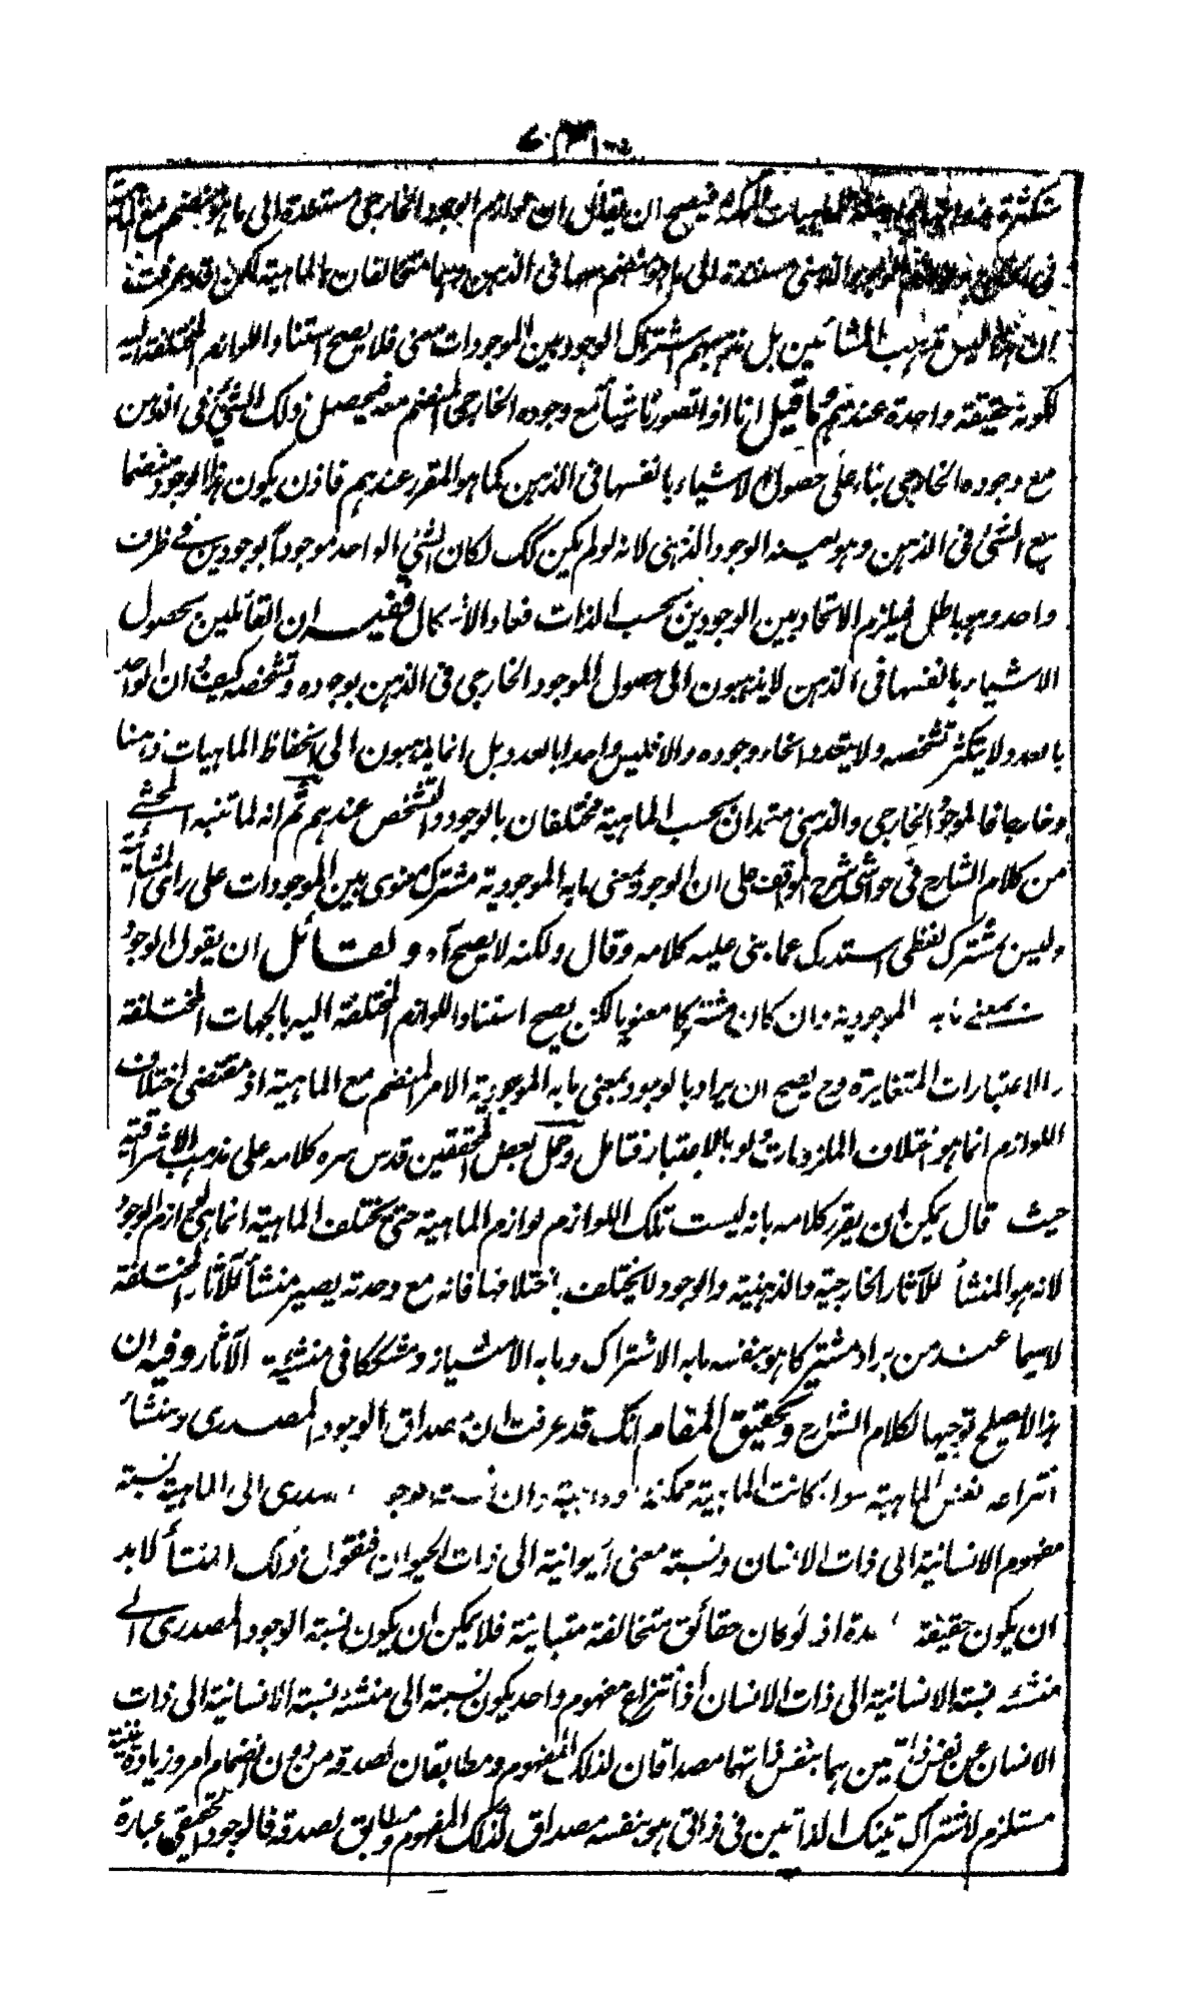 متكثرة الماهيات الممكنة فيصح ان يقال ان لوازم الوجود الخارجي مستندة الى ما هو منضم مع الماهية
في الخارج ولوازم الوجود الذهني مستندة الى ما هو منضم معها في الذهن وهما متخالفان بالماهية لكن قد عرفت
ان هذا ليس مذهب المشائين بل مذهبهم اشتراك الوجود بين الموجودات معنى فلا يصح استناد اللوازم المختلفة اليه
لكونه حقيقة واحدة عندهم وما قيل انا اذا تصورنا شيأ مع وجوده الخارجي المنضم معه فيحصل ذلك الشئ في الذهن
مع وجوده الخارجي بناء على حصول الاشياء بانفسها في الذهن كما هو المقرر عندهم فاذن يكون هذا الوجود منضما
مع الشئ في الذهن وهو بعينه الوجود الذهني لانه لو لم يكن كك لكان الشئ الواحد موجودا بوجودين في ظرف
واحد وهو باطل فيلزم الاتحاد بين الوجودين بحسب الذات فعاد الاشكال ففيه ان القائلين بحصول
الاشياء بانفسها في الذهن لا يذهبون الى حصول الموجود الخارجي في الذهن بوجوده وتشخصه كيف وان الواحد
بالعدد لا يتكثر تشخصه ولا يتعدد انحاء وجوده والا فليس واحدا بالعدد بل انما يذهبون الى انحفاظ الماهيات ذهنا
وخارجا فالموجود الخارجي والذهني متحدان بحسب الماهية مختلفان بالوجود والتشخص عندهم ثم انه لما تنبه المحشي
من كلام الشارح في حواشي شرح المواقف على ان الوجود بمعنى ما به الموجودية مشترك معنوي بين الموجودات على راى المشائية
وليس بمشترك لفظي استدرك عما بنى عليه كلامه وقال ولكنه لا يصح آه ولقائل ان يقول الوجود
بمعنى ما به الموجودية وان كان مشتركا معنويا لكن يصح استناد اللوازم المختلفة اليه بالجهات المختلفة
والاعتبارات المتغايرة وح يصح ان يراد بالوجود بمعنى ما به الموجودية الامر المنضم مع الماهية اذ مقتضى اختلاف
اللوازم انما هو اختلاف الملزومات ولو بالاعتبار فتامل وحمل بعض المحققين قدس سره كلامه على مذهب الاشراقية
حيث قال يمكن ان يقرر كلامه بانه ليست تلك اللوازم لوازم الماهية حتى تختلف الماهية انما هي لوازم الوجود
لانه هو المنشأ للآثار الخارجية والذهنية والوجود لا يختلف باختلافها فانه مع وحدته يصير منشأ للآثار المختلفة
لاسيما عند من يراه مشتركا هو بنفسه ما به الاشتراك وما به الامتياز ومشككا في منشئية الآثار وفيه ان
هذا لا يصلح توجيها لكلام الشارح وتحقيق المقام انك قد عرفت ان مصداق الوجود المصدري ومنشأ
انتزاعه نفس الماهية سواء كانت الماهية ممكنة او واجبة وان نسبة الوجود المصدري الى الماهية نسبة
مفهوم الانسانية الى ذات الانسان ونسبة معنى الحيوانية الى ذات الحيوان فنقول ذلك المنشأ لابد
ان يكون حقيقة واحدة اذ لو كان حقائق متخالفة متباينة فلا يمكن ان يكون نسبة الوجود المصدري الى
منشئه نسبة الانسانية الى ذات الانسان اذ انتزاع مفهوم واحد يكون نسبته الى منشئه نسبة الانسانية الى ذات
الانسان عن نفس ذاتين هما بنفس ذاتهما مصداقان لذلك المفهوم ومطابقان لصدقه من دون انضمام امر وزيادة
مستلزم لاشتراك تينك الذاتين في ذاتي هو بنفسه مصداق لذلك المفهوم ومطابق لصدقه فالوجود الحقيقي عبارة